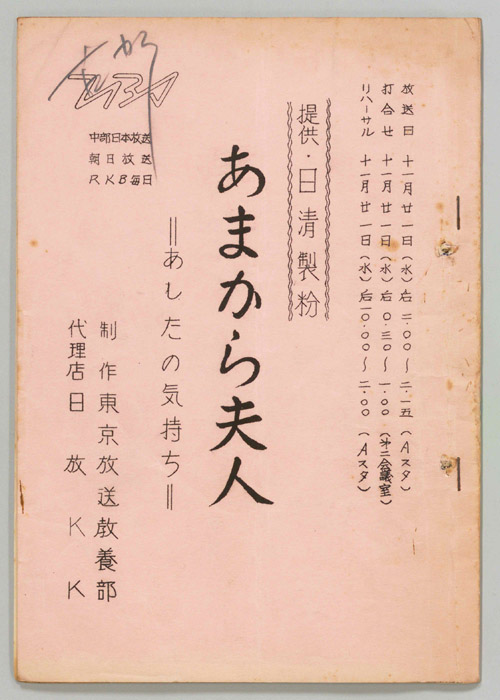 放送日 十一月廿一日(水)后二.〇〇〜二.一五(Aスタ)
打合せ 十一月廿一日(水)后〇.三〇〜一.〇〇(第二会議室)
リハーサル 十一月廿一日(水)后一〇.〇〇〜二.〇〇(Aスタ)
提供・日清製粉
あまから夫人
=あしたの気持ち=
中部日本放送
朝日放送
RKB毎日
制作東京放送教養部
代理店日放KK